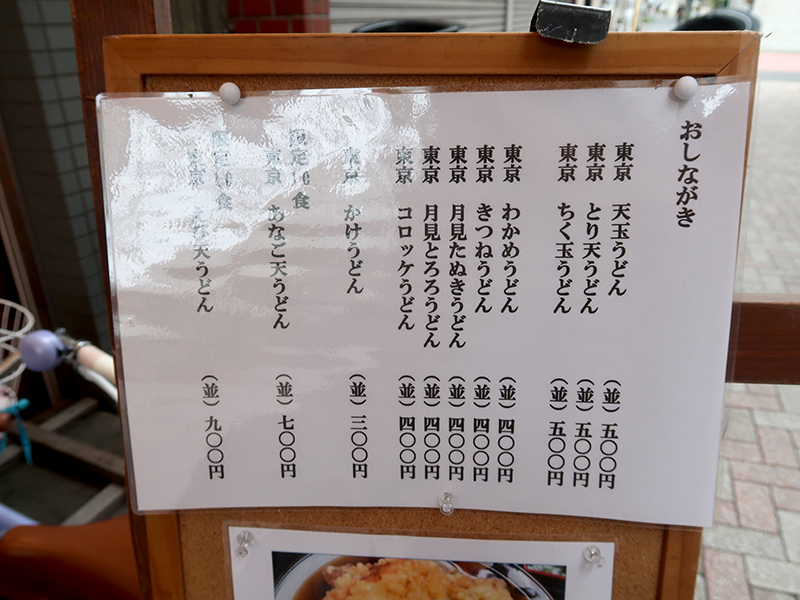 おしながき
東京 天玉うどん (並) 五〇〇円
東京 とり天うどん (並) 五〇〇円
東京 ちく玉うどん (並) 五〇〇円
東京 わかめうどん (並) 四〇〇円
東京 きつねうどん (並) 四〇〇円
東京 月見たぬきうどん (並) 四〇〇円
東京 月見とろろうどん (並) 四〇〇円
東京 コロッケうどん (並) 四〇〇円
東京 かけうどん (並) 三〇〇円
限定10食
東京 あなご天うどん (並) 七〇〇円
限定10食
東京 天うどん (並) 九〇〇円